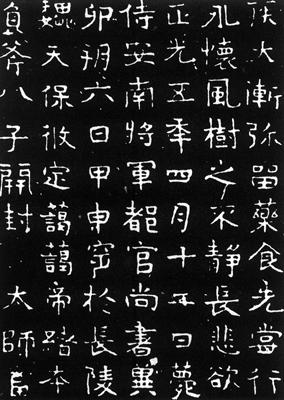 疾大漸弥留藥食先嘗行
孔懷風樹之不靜長悲欲
正光五年四月十五日薨
侍安南將軍都官尚書冀
卯朔六日甲申窆於長陵
魏天保攸定藹藹帝緒本
負斧八子開封太師